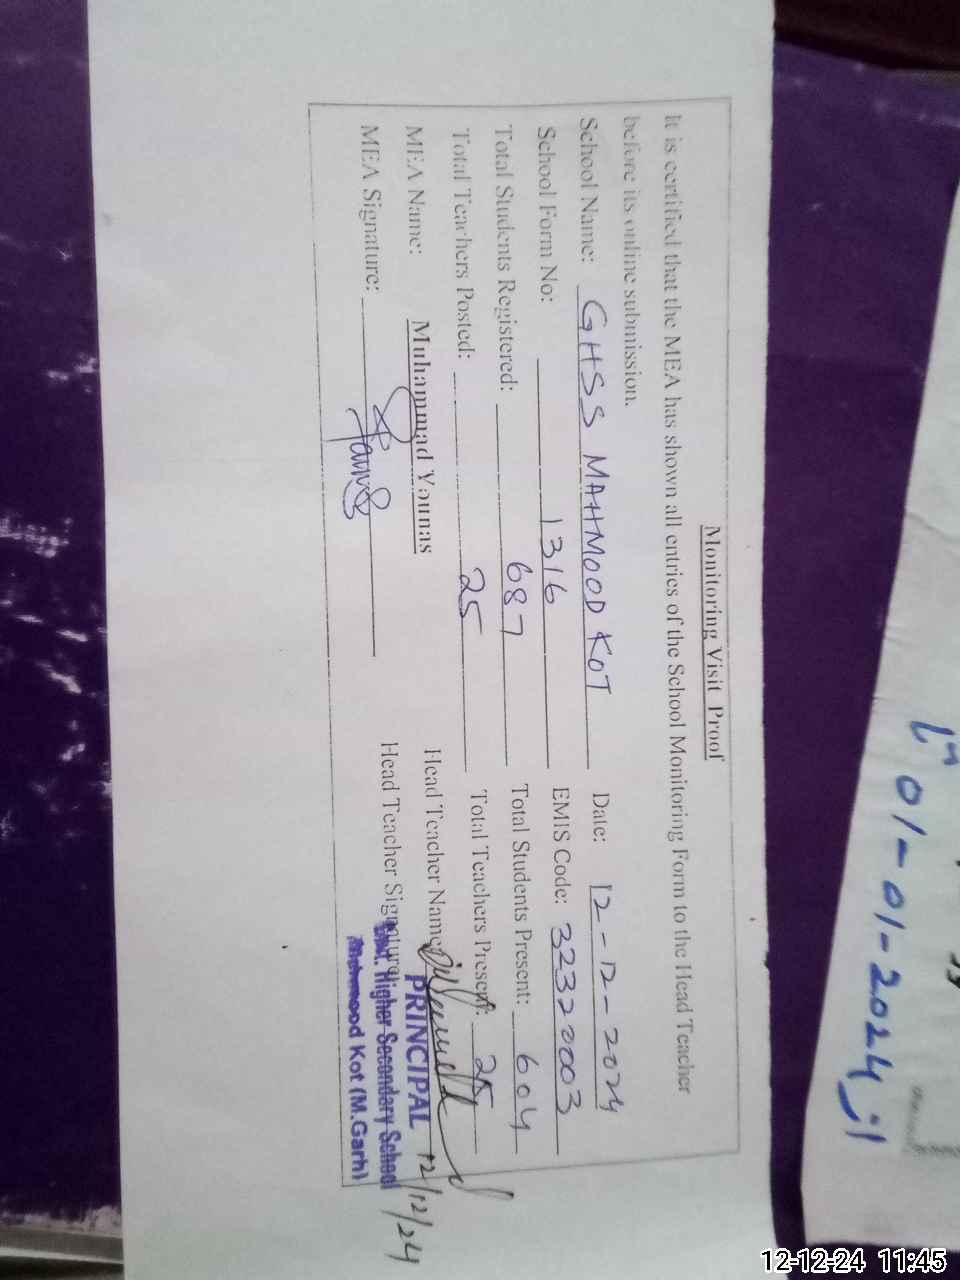 Monitoring Visit Proof
It is certified that the MEA has shown all entries of the School Monitoring Form to the Head Teacher
before its online submission.
School Name: GHSS MAHMOOD KOT Date: 12-12-2024
School Form No: 1316 EMIS Code: 32320003
Total Students Registered: 687 Total Students Present: 604
Total Teachers Posted: 25 Total Teachers Present: 25
MEA Name: Muhammad Younas Head Teacher Name:
MEA Signature: Head Teacher Signature:
PRINCIPAL
Govt. Higher Secondary School
Mahmood Kot (M.Garh)
12/12/24
01-01-2024 از
12-12-24 11:45